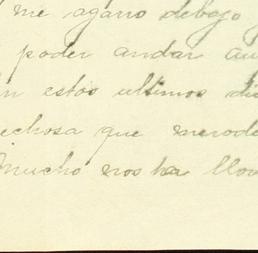 me agarro debajo
poder andar au
n estos ultimos di
echosa que merode
mucho nos ha llov